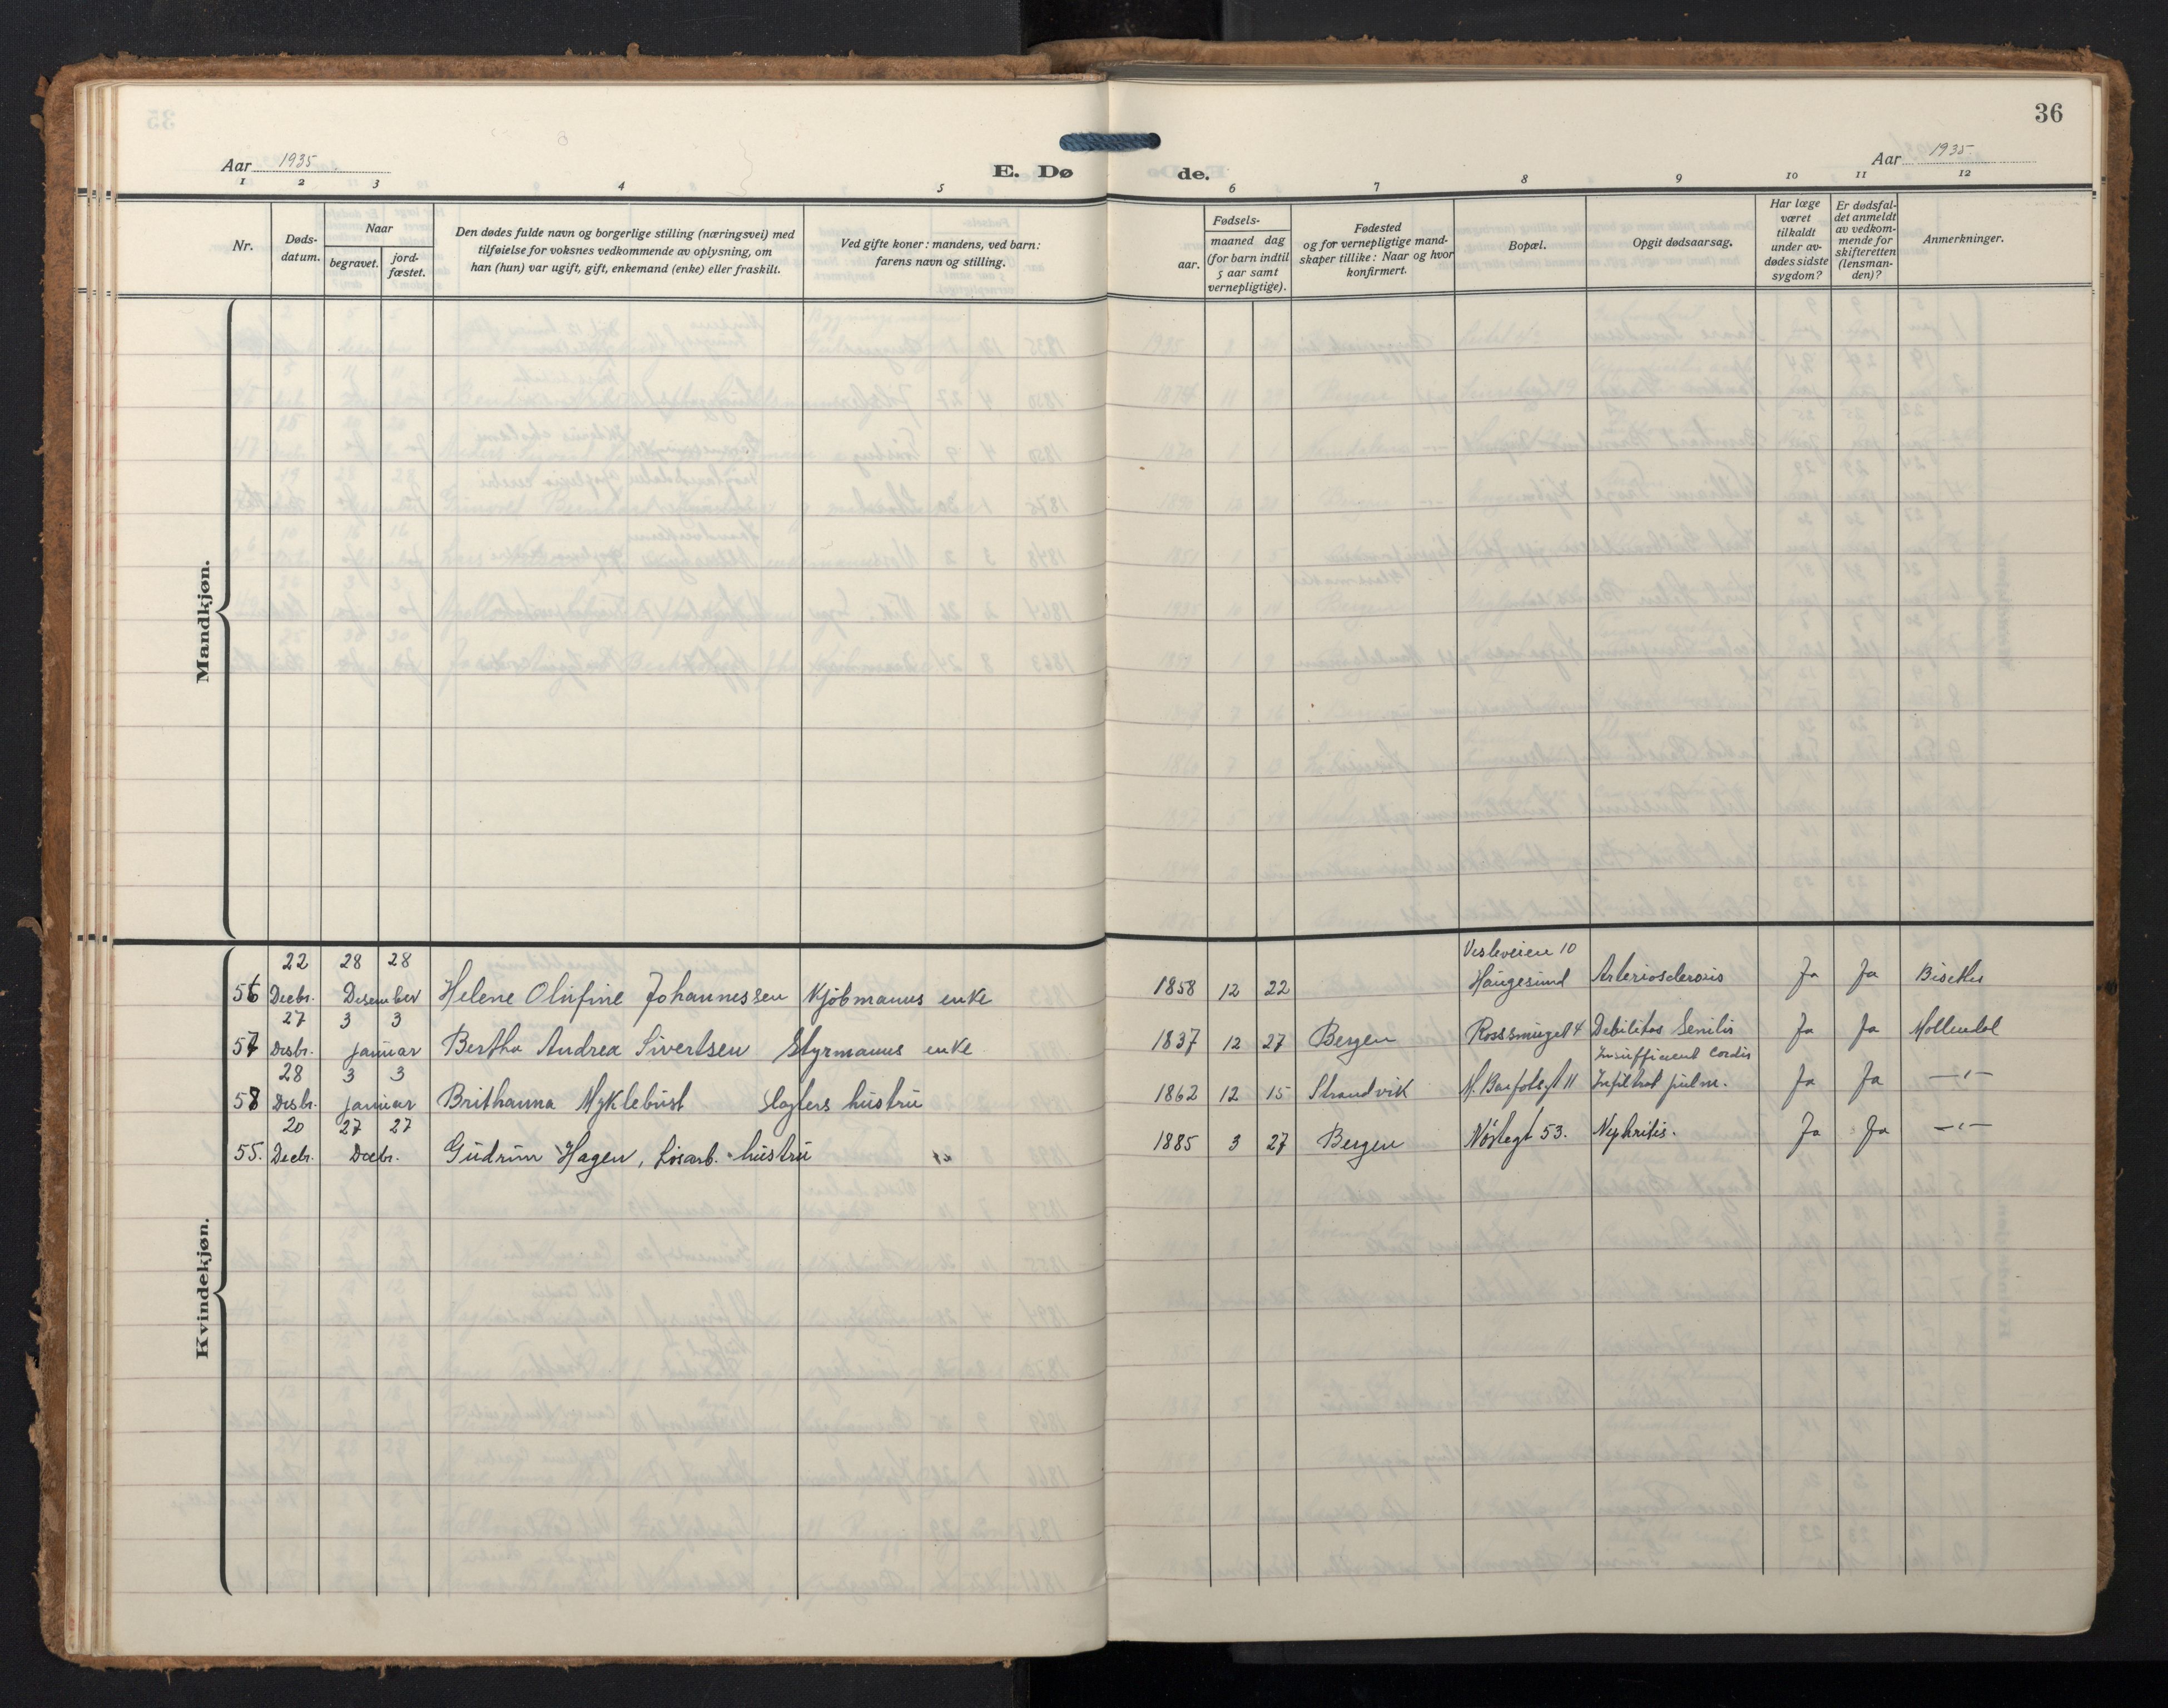 36
Aar 1935
E. Dø de.
Aar 1935
1 2 3 4 5 6 7 8 9 10 11 12
Nr.
Døds-
datum.
Naar
begravet.
jord-
fæstet.
Den dødes fulde navn og borgerlige stilling (næringsvei) med
tilføielse for voksnes vedkommende av oplysning, om
han (hun) var ugift, gift, enkemand (enke) eller fraskilt.
Ved gifte koner: mandens, ved barn:
farens navn og stilling.
Fødsels-
aar.
maaned dag
(for barn indtil
5 aar samt
vernepligtige).
Fødested
og for vernepligtige mand-
skaper tillike: Naar og hvor
konfirmert.
Bopæl.
Opgit dødsaarsag.
Har læge
været
tilkaldt
under av-
dødes sidste
sygdom?
Er dødsfal-
det anmeldt
av vedkom-
mende for
skifteretten
(lensman-
den)?
Anmerkninger.
Mandkjøn.
Kvindekjøn.
22 28 28 Vesleveien 10
56 Decbr. Desember Helene Olufine Johannessen Kjöbmanns enke 1858 12 22 Haugesund Arteriosclerosis Ja Ja
27 3 3
57 Desbr. Januar Bertha Andrea Sivertsen Styrmanns enke 1837 12 27 Bergen Rossmuget 4 Debilitas Senilis Ja Ja Mollendal
28 3 3 Insufficient Cordis
58 Desbr. Januar Brithanna Myklebust Slagters hustru 1862 12 15 Strandvik 11 Infiltrat pulm. Ja Ja —"—
20 27 27
55. Decbr. Decbr. Gudrun Hagen, Lösarb. hustru 1885 3 27 Bergen Nöstegt 53. Nephritis. Ja Ja —"—